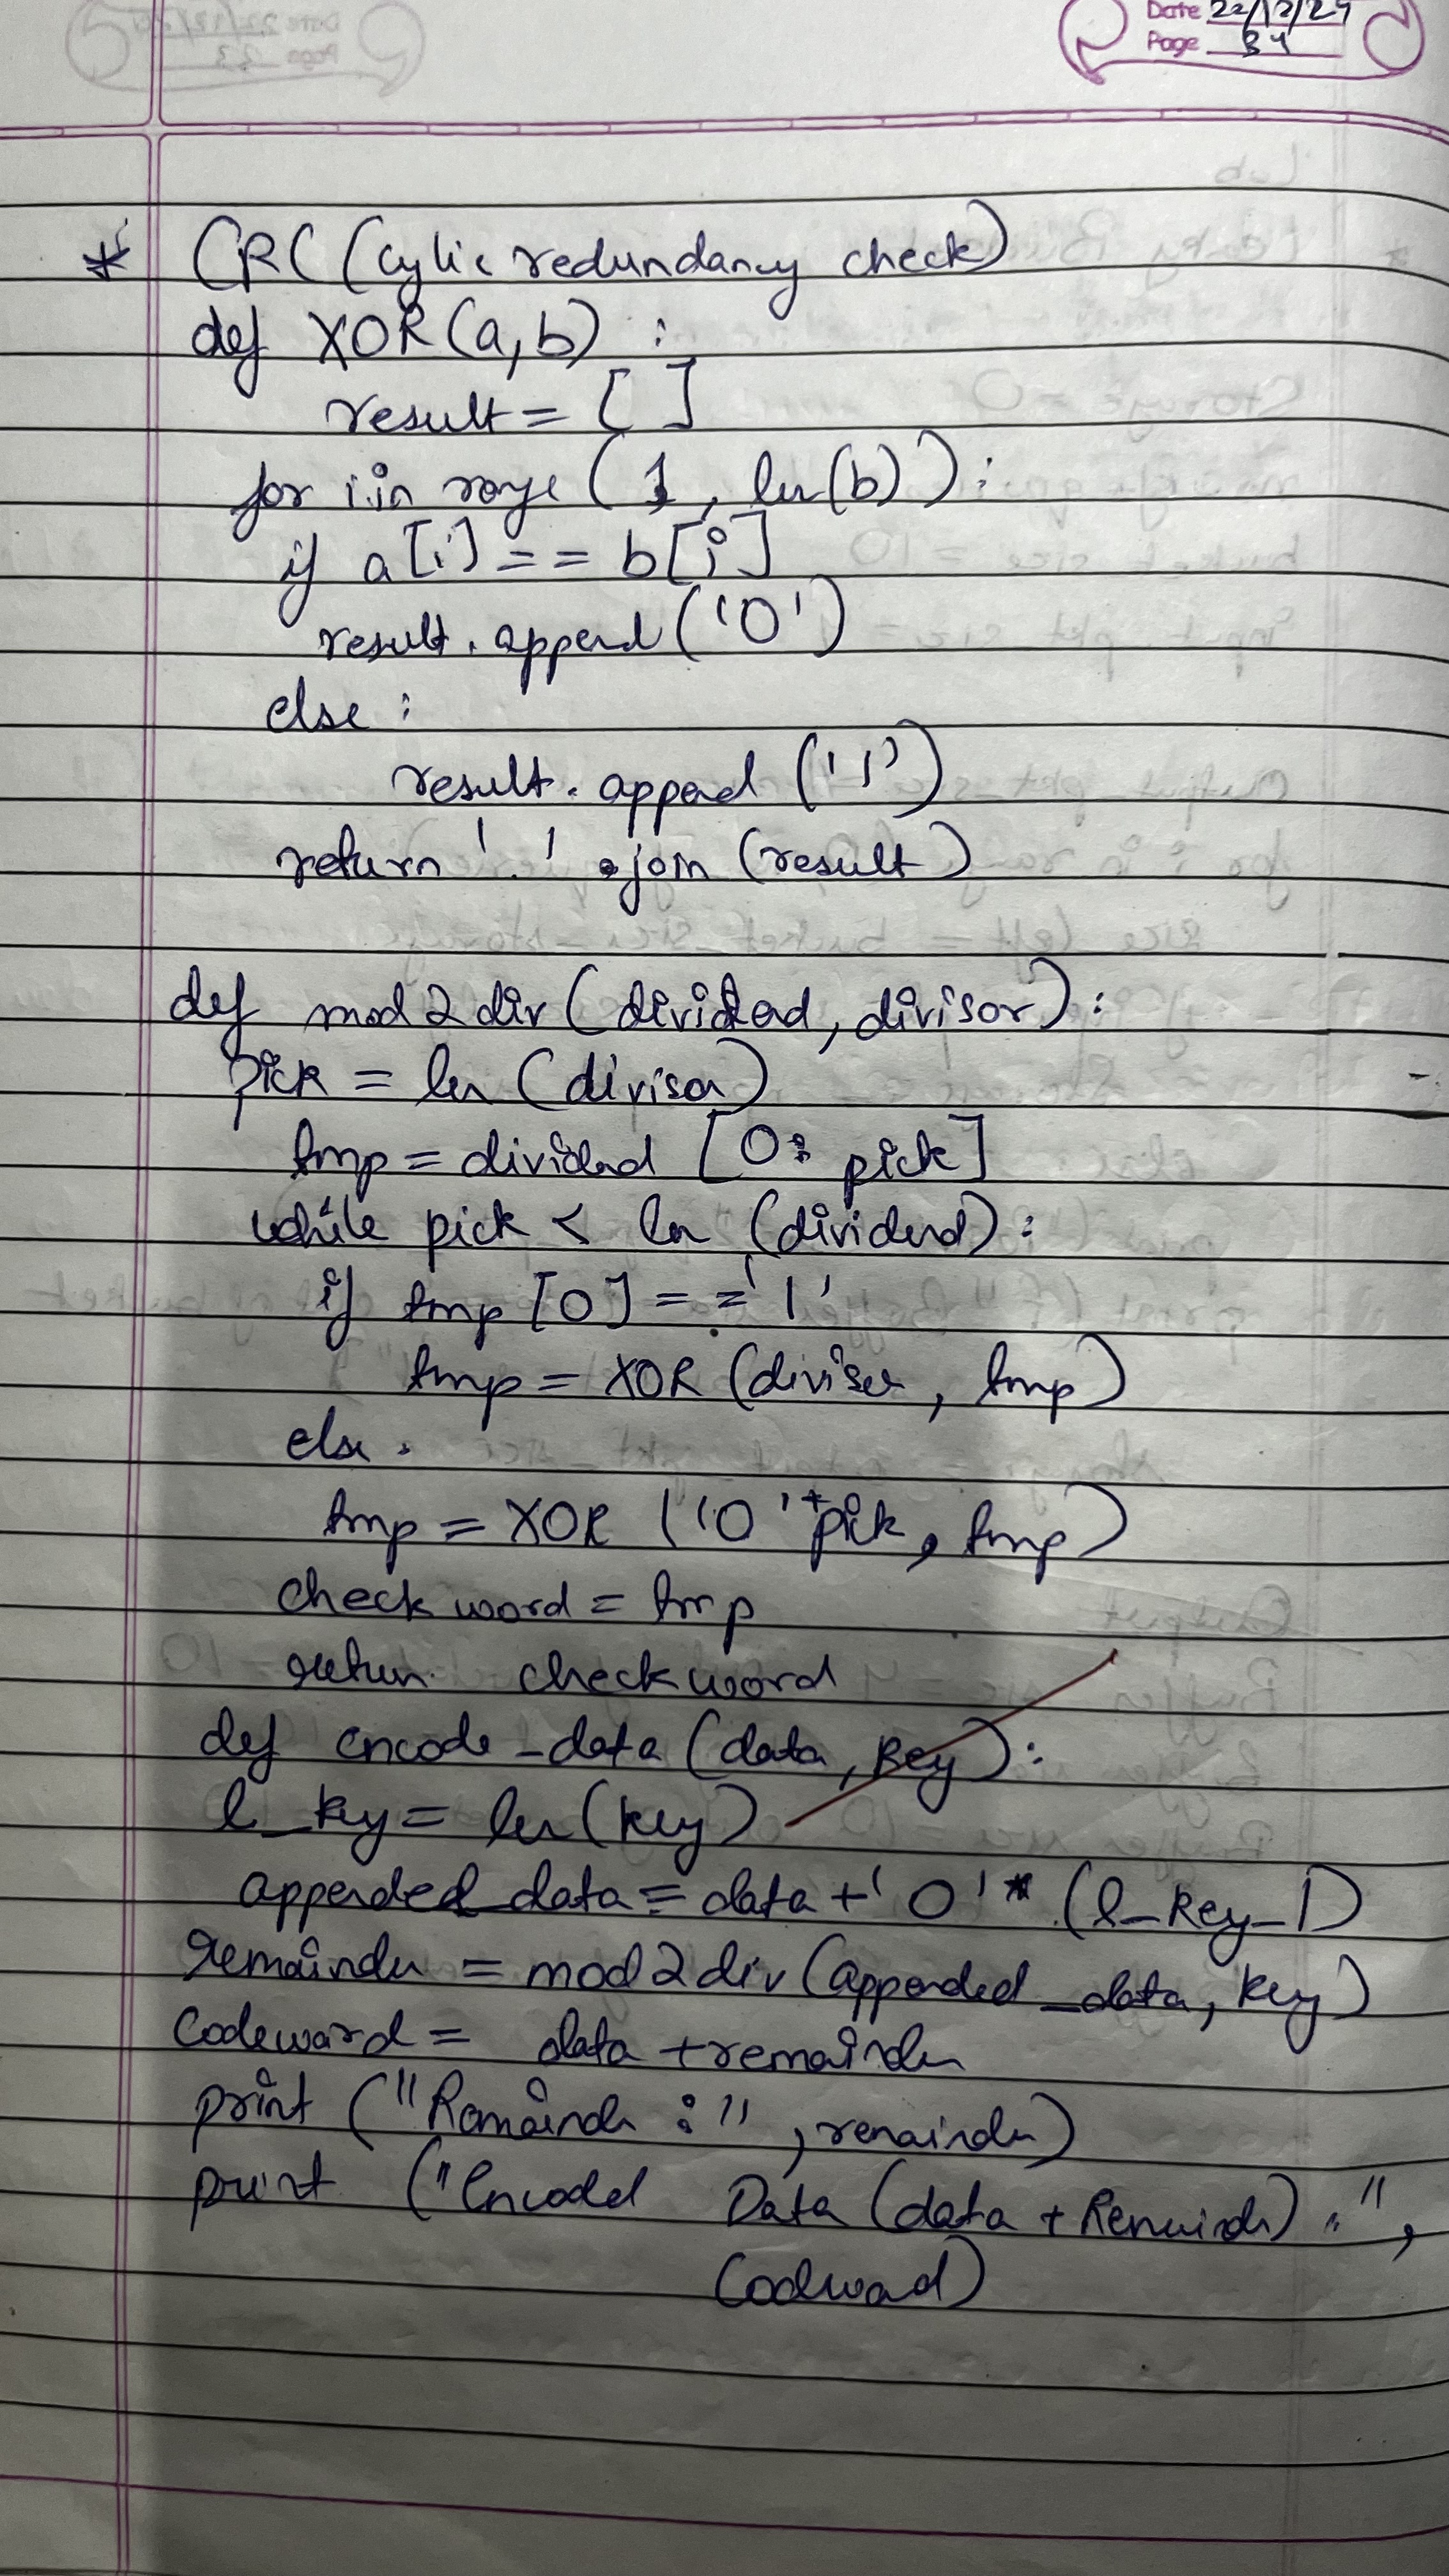 Date 22/12/24
Page 34
* CRC (Cylic redundancy check)
def XOR(a,b) :
result = [ ]
for i in range (1, len(b)) :
if a[i] == b[i]
result.append('0')
else :
result.append ('1')
return ' ' .join (result)
def mod2div (dividend, divisor) :
pick = len (divisor)
tmp = dividend [0: pick]
while pick < len (dividend) :
if tmp [0] == '1'
tmp = XOR (divisor, tmp)
else .
tmp = XOR ('0' + pick, tmp)
check word = tmp
return checkword
def encode_data (data, key) :
l_key = len (key)
appended_data = data + '0' * (l_key_1)
remainder = mod2div (appended_data, key)
Codeword = data + remainder
print ("Remainder :" , remainder)
print ("Encoded Data (data + Remainder) :" ,
Codeword)